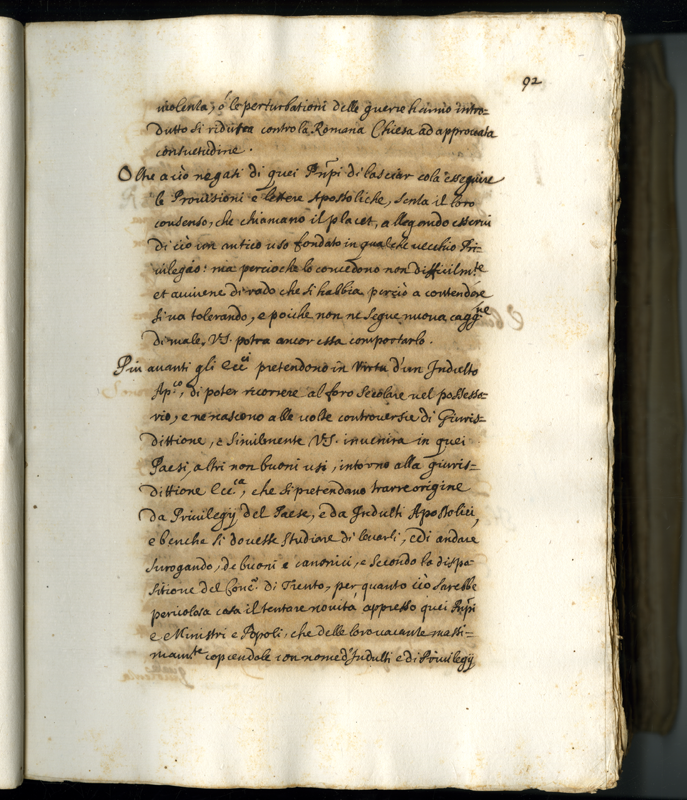 92
violenta, ó le perturbationi delle guerre hanno intro-
dutto si riduca contro la Romana Chiesa ad approvata
consuetudine.
Oltre a ciò negati di quei Prñpi di lasciar colà esseguire
le Provisioni e lettere Apostoliche, senza il loro
consenso, che chiamano il placet, allegando esservi
di ciò un antico uso fondato in qualche vecchio Pri-
vilegio: ma percioche lo concedono non difficilm.te
et avviene di rado che si habbia perciò a contendere
si va tolerando, e poiche non ne segue nuova cagg.ne
di male, V.S. potra ancor essa comportarlo.
Più avanti gli Ecc.ci pretendono in virtù d'un Indulto
Ap.co, di poter ricorrere al foro secolare nel possesso-
rio, e ne nascono alle volte controversie di Giuris-
dittione, e similmente V.S. invenirà in quei
Paesi, altri non buoni usi, intorno alla giuris-
dittione Ecc.ca, che si pretendano trarre origine
da Privilegij del Paese, e da Indulti Apostolici,
e benche si dovesse studiare di levarli, ed andare
surogando, de buoni e canonici, e secondo la dispo-
sitione del Conc.o di Trento, per quanto ciò sarebbe
pericolosa cosa il tentare novità appresso quei Prñpi
e Ministri e Popoli, che delle loro usanze massi-
mam.te coprendole con nome d'Indulti e di Privilegij